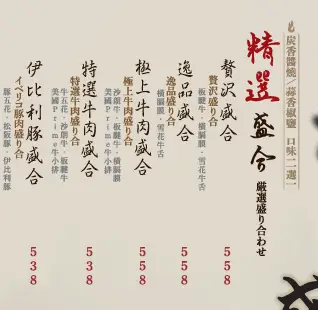 炭香醬燒/蒜香椒鹽 口味二選一
精選盛合 厳選盛り合わせ
贅沢盛合
贅沢盛り合
板腱牛．雪花牛舌
558
逸品盛合
逸品盛り合
橫膈膜．雪花牛舌
558
極上牛肉盛合
極上牛肉盛り合
沙朗牛．板腱牛．橫膈膜
美國Prime牛小排
558
特選牛肉盛合
特選牛肉盛り合
牛五花．沙朗牛．板腱牛
美國Prime牛小排
538
伊比利豚盛合
イベリコ豚肉盛り合
豚五花．松阪豚．伊比利豚
538